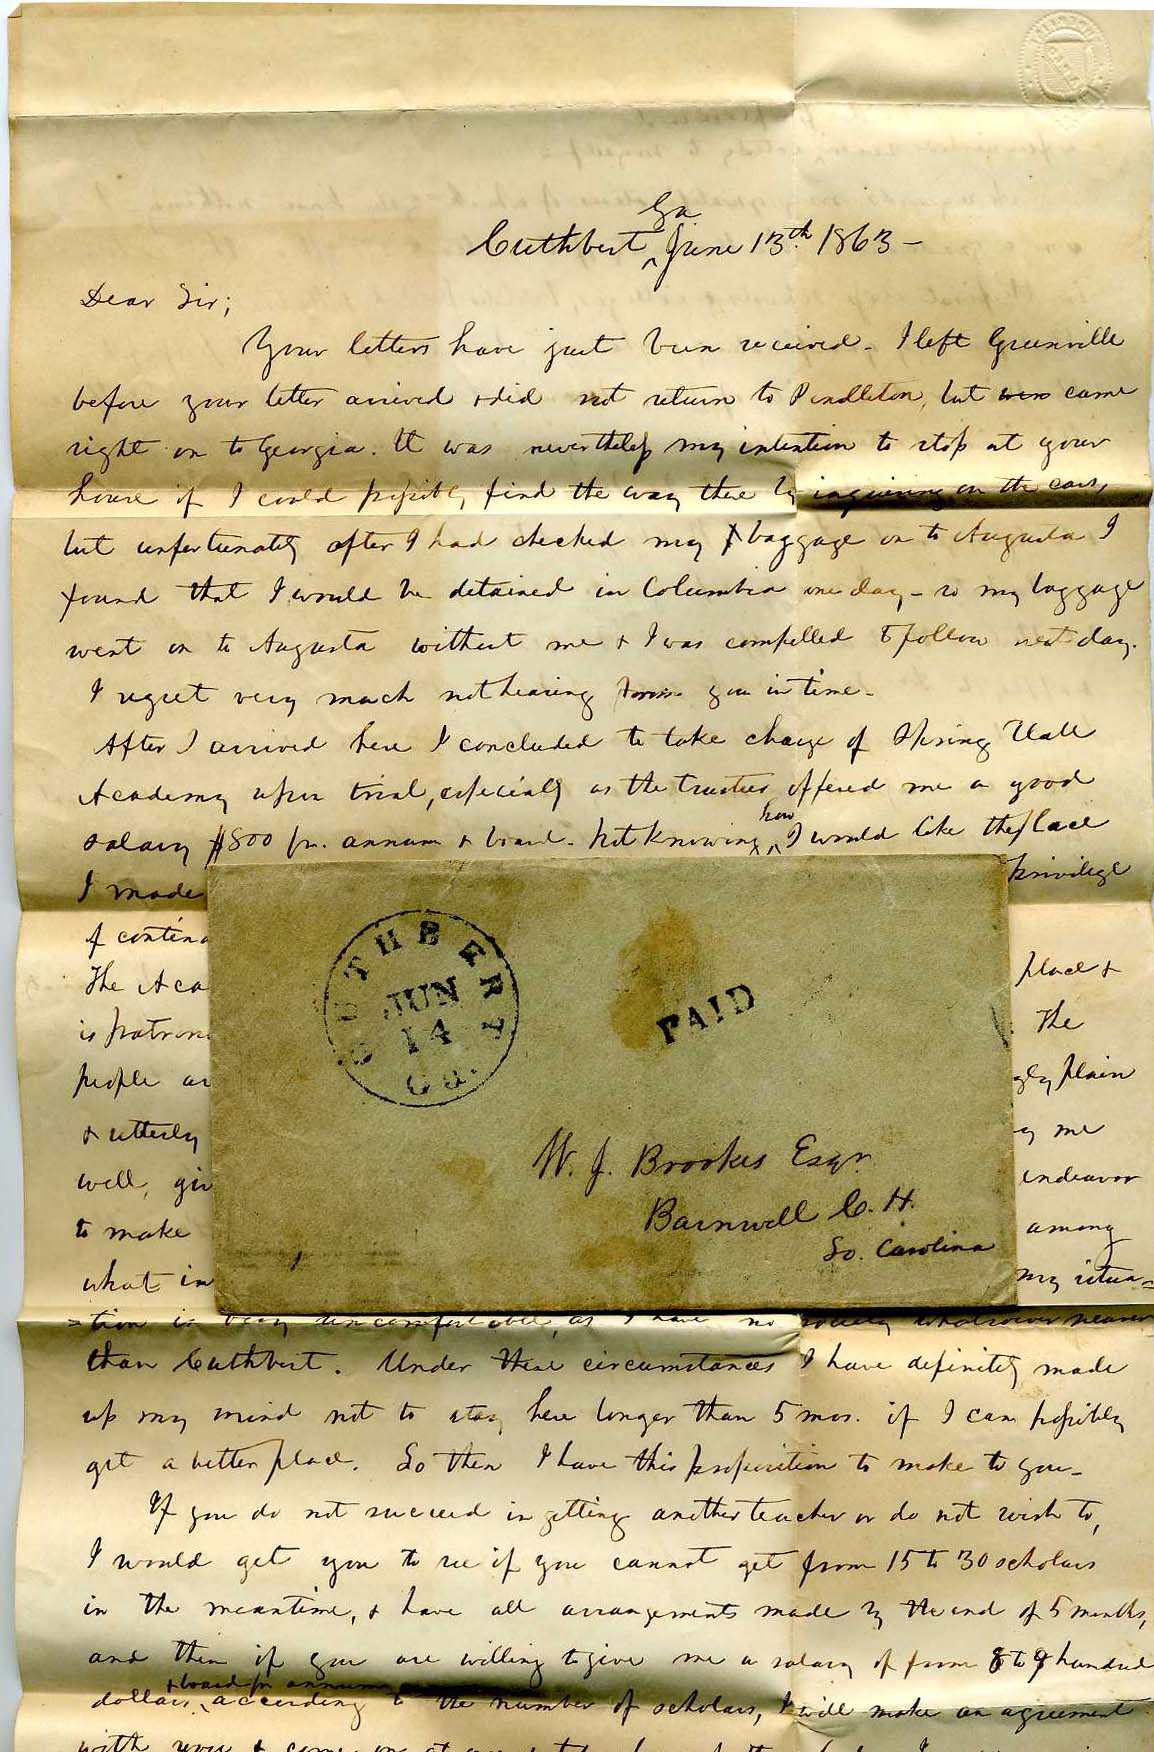 Ga
Cuthbert ^ June 13th 1863 –
Dear Sir;
Your letters have just been received – I left Greenville
before your letter arrived & did not return to Pendleton, but came
right on to Georgia. It was nevertheless my intention to stop at your
house if I could possibly find the way there by inquiring on the cars,
but unfortunately after I had checked my baggage on to Augusta I
found that I would be detained in Columbia one day – so my baggage
went on to Augusta without me & I was compelled to follow next day.
I regret very much not hearing from you in time –
After I arrived here I concluded to take charge of Spring Vale
Academy upon trial, especially as the trustees offered me a good
how
salary $800 pr. annum & board – Not knowing ^ I would like the place
I made privilege
of contin
The Aca place &
is patron The
people ar gly plain
& utterly y me
well, giv endeavor
to make among
what in my situa=
=tion is very uncomfortable, as I have no society whatsoever nearer
than Cuthbert. Under these circumstances I have definitely made
up my mind not to stay here longer than 5 mos. if I can possibly
get a better place. So then I have this proposition to make to you –
If you do not succeed in getting another teacher or do not wish to,
I would get you to see if you cannot get from 15 to 30 scholars
in the meantime, & have all arrangements made by the end of 5 months,
and then if you are willing to give me a salary of from 8 to 9 hundred
& board pr annum
dollars ^ according to the number of scholars, I will make an agreement
with you & come on at
CUTHBERT
JUN
14
Ga.
PAID
W. J. Brookes Esqr.
Barnwell C. H.
So. Carolina